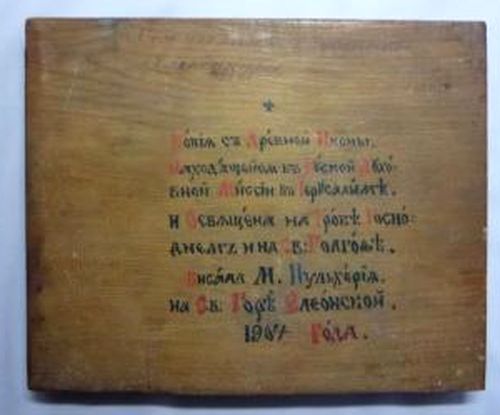 Копїя съ Древной Иконы,
Находѧщейсѧ въ Рѹсской Дѹхо-
вной Миссіи въ Іерѹсалимѣ.
и Освѧщена на Гробѣ Госпо-
днемъ и на Св: Голгоѳѣ.
Писала М. Пульхерїѧ.
на Св: Горѣ Елеонской.
1907 Года.